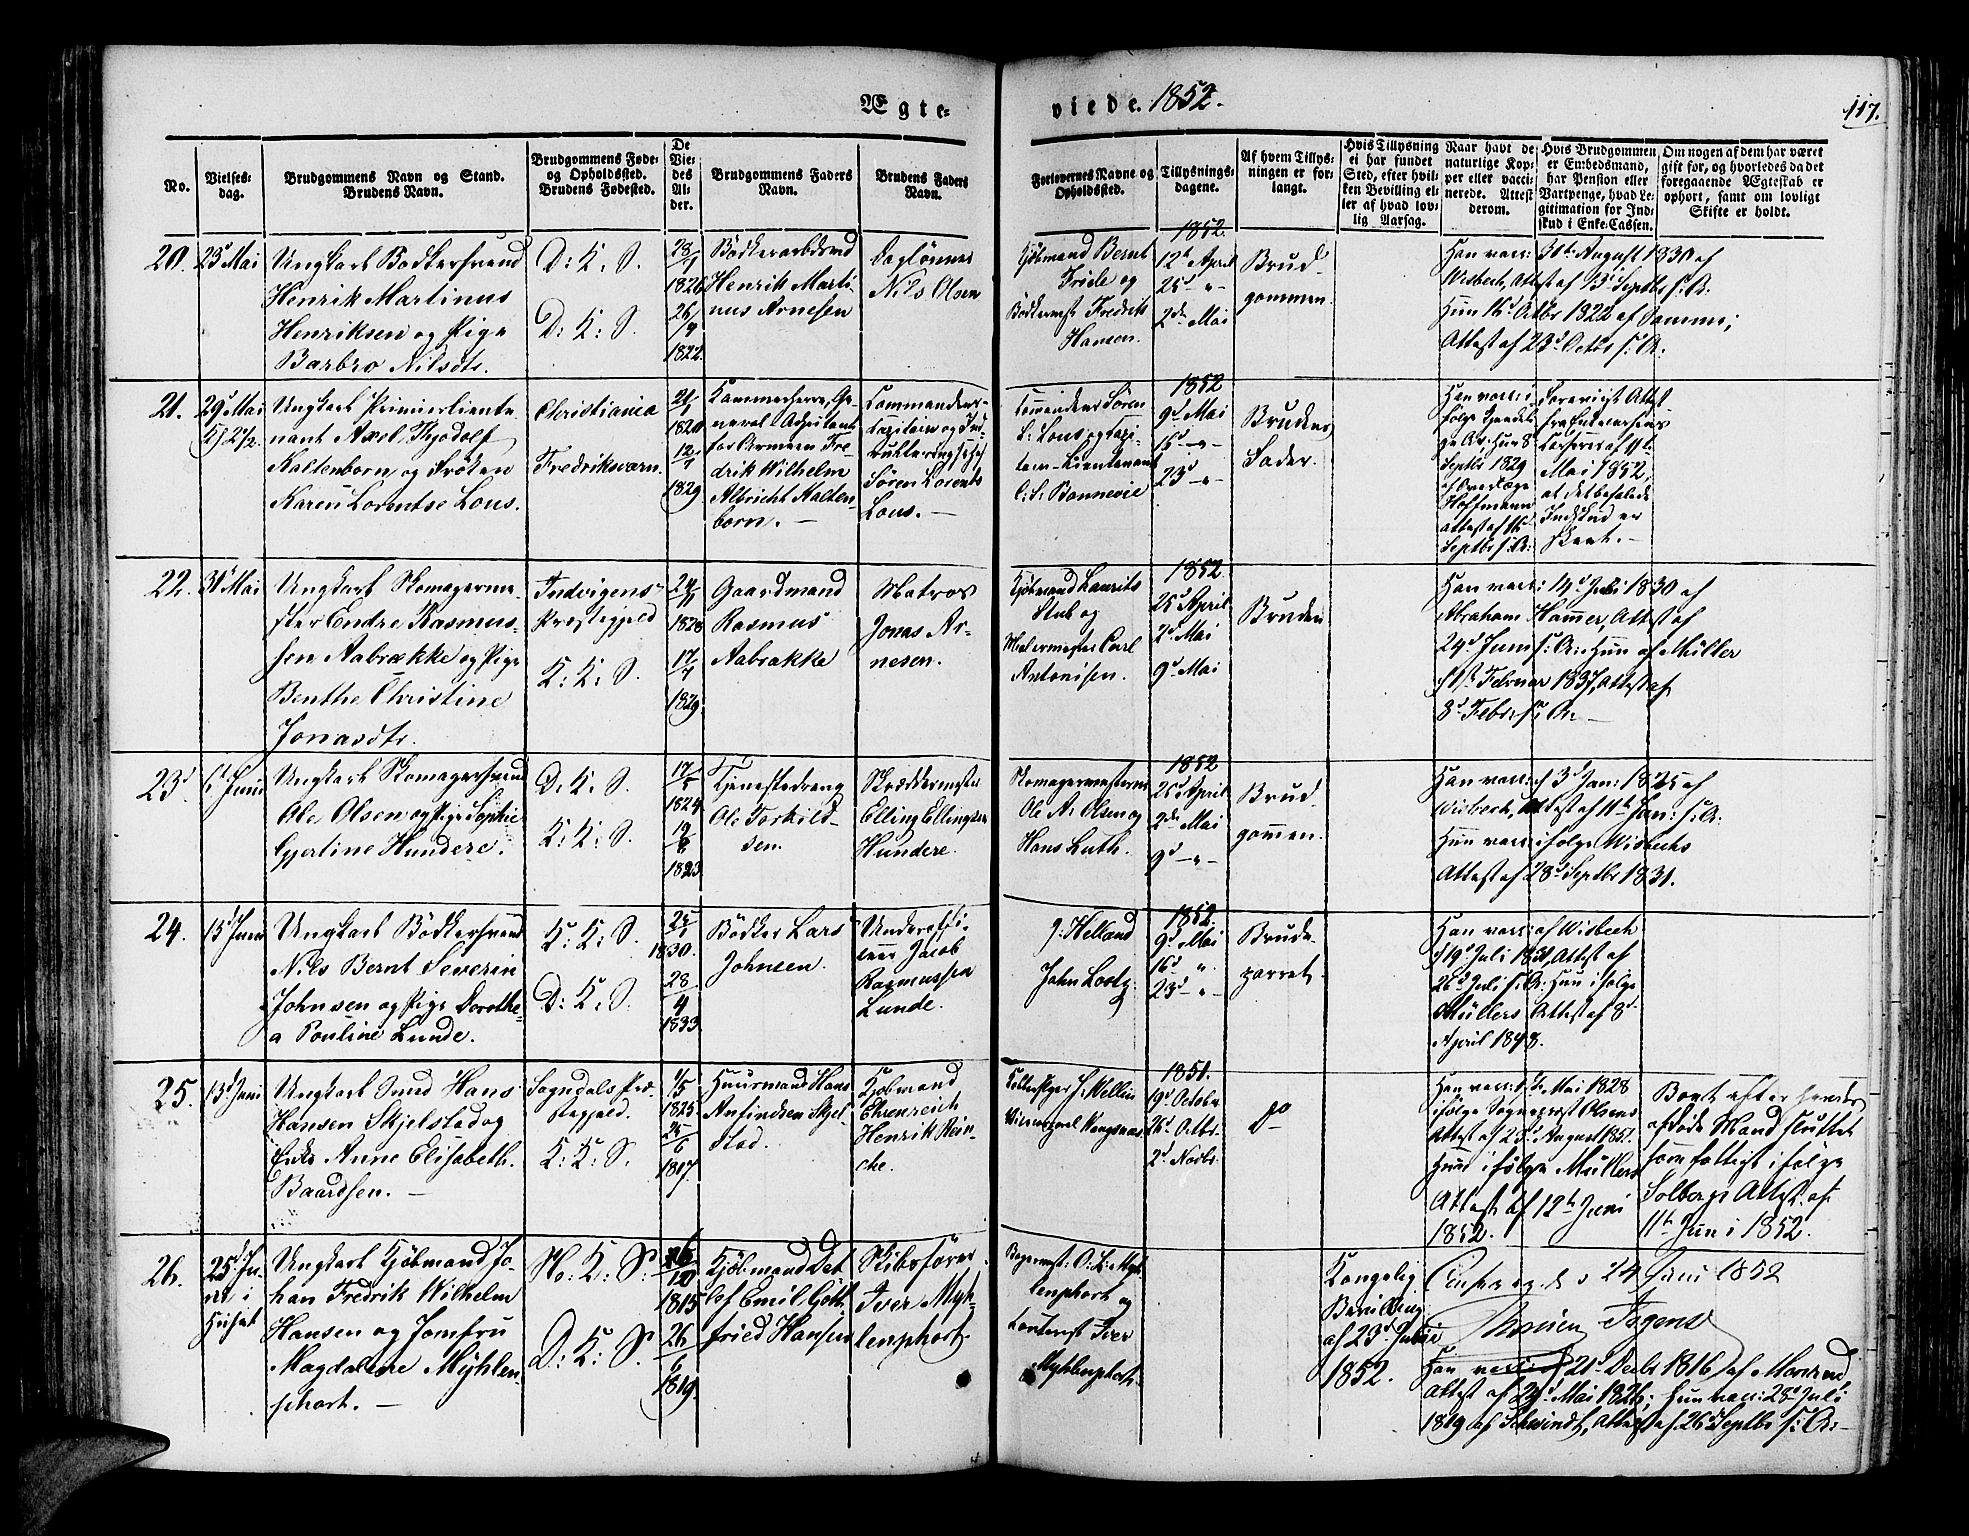 Ægte-
viede. 1852.
117.
No.
Vielses-
dag.
Brudgommens Navn og Stand.
Brudens Navn.
Brudgommens Føde-
og Opholdssted.
Brudens Fødested.
De
Vie-
des
Al-
der.
Brudgommens Faders
Navn.
Brudens Faders
Navn.
Forlovernes Navne og
Opholdssted.
Tillysnings-
dagene.
Af hvem Tillys-
ningen er for-
langt.
Hvis Tillysning
ei har fundet
Sted, efter hvil-
ken Bevilling el-
ler af hvad lov-
lig Aarsag.
Naar havt de
naturlige Kop-
per eller vacci-
nerede. Attest
derom.
Hvis Brudgommen
er Embedsmand,
har Pension eller
Vartpenge, hvad Le-
gitimation for Ind-
skud i Enke-Cassen.
Om nogen af dem har været
gift før, og hvorledes da det
foregaaende Ægteskab er
ophørt, samt om lovligt
Skifte er holdt.
20.
23d Mai
Ungkarl Bødkersvend
Henrik Martinus
Henriksen og Pige
Barbro Nilsdtr.
D: K: S.
D: K: S.
28/1
1826
26/4
1822.
Bødkerarbdsmd
Henrik Marti-
nus Arnesen
Daglønner
Nils Olsen
Kjøbmand Bernt
Friele og
Bødkermst Fredrik
Hansen.
1852.
12te April
25d "
2den Mai
Brud-
gommen.
Han vacc: 31te August 1830 af
Wisbech, Attest af 13d Septbr s. A.
Hun 16d Octbr 1822 af samme;
Attest af 23d Octbr s: A:
21.
29d Mai
Kl 2 1/2.
Ungkarl Primierlieute-
nant Axel Thjodolf
Kaltenborn og Frøken
Karen Lorentse Lous.
Christiania
Fredriksværn.
21/1
1820
12/7
1829.
Kammerherre, Ge-
neral Adjutant
for Armeen Fre-
drik Wilhelm
Albricht Kalten-
born. —
Commandeur-
Søren Lorents
Lous. —
Commandeur Søren
L: Lous og Capi-
tain-Lieutenant
C: S: Bonnevie
1852
9d Mai
16d - " -
23d - " -
Brudens
Fader.
Han vacc: i
Septbr 1829
af Overlæge
Hoffmann
attest af 16d
Septbr s: A:
Mai 1852,
at det befalede
Indskud er
skeet. —
22.
31d Mai
Ungkarl Skomagerme-
ster Endre Rasmus-
sen Aabrække og Pige
Benthe Christine
Jonasdtr.
Indvigens
Præstegjeld
K: K: S.
24/11
1828
17/7
1829
Gaardmand
Rasmus
Aabrække
Matros
Jonas Ar-
nesen.
Kjøbmand Laurits
Stub og
Malermester Carl
Antonisen.
1852.
25d April
2d Mai
9d Mai
Bruden
Han vacc: 14d Juli 1830 af
Abraham Hammer, Attest af
24d Juni s: A: Hun af Müller
1ste Februar 1837, Attest af
8d Febr: s: A: —
23d
1d Juni
Ungkarl Skomagersvend
Ole Olsen og Pige Sophie
Gjertine Hundere.
D: K: S.
K: K: S.
17/5
1824
19/8
1823
Tjenestedreng
Ole Torkild-
sen.
Skræddermester
Elling Ellingsen
Hundere.
Skomagermesterne
Ole A: Olsen og
Hans Luth.
1852
25d April
2den Mai
9d - " -
Brud-
gommen.
Han vacc: 3d Jan: 1825 af
Wisbech, Attest af 11te Jan: s: A:
Hun vacc: ifølge Wisbechs
Attest af 28d Septbr 1831.
24.
13d Juni
Ungkarl Bødkersvend
Nils Bernt Severin
Johnsen og Pige Dorothe-
a Pouline Lunde.
K: K: S.
D: K: S.
25/1
1830.
28/4
1833
Bødker Lars
Johnsen.
Jacob
Rasmussen
Lunde.
J. Helland
John Lostz
1852.
9d Mai
16d "
23d - " -
Brude-
parret.
Han vacc: af Wisbech
19d Juli 1831, Attest af
26d Juli s: A: Hun ifølge
Müllers Attest af 8d
April 1848.
25.
13d Juni
Ungkarl Smed Hans
Hansen Skjelstad og
Enke Anne Elisabeth
Baardsen. —
Sogndals Præ-
stegjeld.
K: K: S.
1/5
1825
25/6
1817.
Huusmand Hans
Anfindsen Skjel-
stad.
Kjøbmand
Ehrenreich
Henrik Rein-
che.
1851.
19d October
26d Octbr.
2d Novbr.
do
Han vacc: Mai 1828
ifølge Sognepræst Olsens
Attest af 23d August 1851.
Hun ifølge Müllers
Attest af 12te Juni
1852.
Boet efter hendes
afdøde Mand sluttet
som fattigt ifølge
Solbergs Attest af
11te Juni 1852.
26.
25d Ju-
ni i
Huset
Ungkarl Kjøbmand Jo-
han Fredrik Wilhelm
Hansen og Jomfru
Magdalene Mÿhlen-
phort. —
No: K: S.
D: K: S.
26/10
1815
26/6
1819.
Kjøbmand Det-
lef Emil Gott-
fried Hansen
Skibsfører
Iver Mÿh-
lenphort.
Bagermst. O: L: Mÿh-
lenphort og
Iver
Mÿhlenphort.
Kongelig
Bevilling
af 23d Juni
1852.
24 Juni 1852
Han vacc: 21d Decbr 1816 af Marstrand
Attest af 29d Mai 1826; Hun vacc: 28d Juli
1819 af Schwindt, Attest af 26d Septbr s: A: —